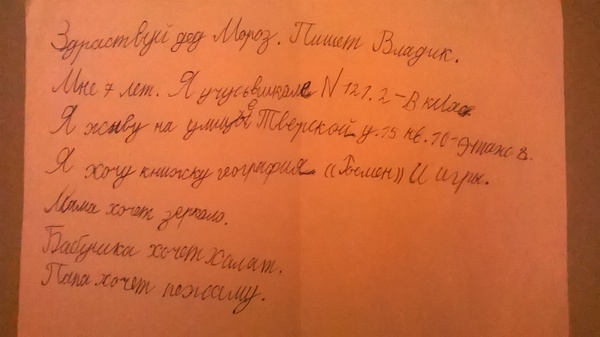 Здраствуй дед Мороз. Пишет Владик.
Мне 7 лет. Я учусьвшкале N 121. 2-В класс
Я живу на улице Тверской у. 15 кв. 10-этаж 8.
Я хочу книжку география «Бемен» И игры.
Мама хочет зеркало.
Бабушка хочет халат.
Папа хочет пежаму.